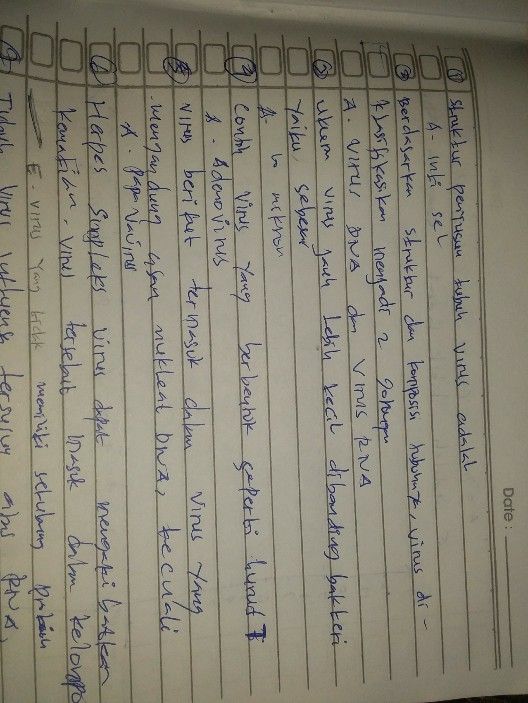 Date :
① struktur penyusun tubuh virus adalah
A. inti sel
② Berdasarkan struktur dan komposisi tubuhnya, virus di-
klasifikasikan menjadi 2 golongan
A. virus DNA dan virus RNA
③ ukuran virus jauh lebih kecil dibanding bakteri
yaitu sebesar
A. mikron
contoh virus yang berbentuk seperti huruf T
A. Adenovirus
⑤ virus berikut termasuk dalam virus yang
mengandung asam nukleat DNA, kecuali
A. papovavirus
⑥ Herpes Simpleks virus dapat mengakibatkan
kematian. virus tersebut masuk dalam kelompo
E. virus yang tidak memiliki selubung
Tubuh virus influenza tersusun atas RNA,